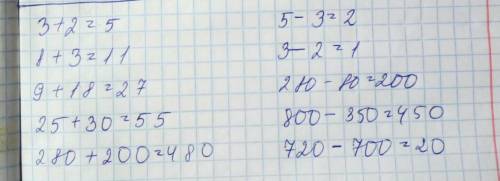 3+2=5
8+3=11
9+18=27
25+30=55
280+200=480
5-3=2
3-2=1
280-80=200
800-350=450
720-700=20